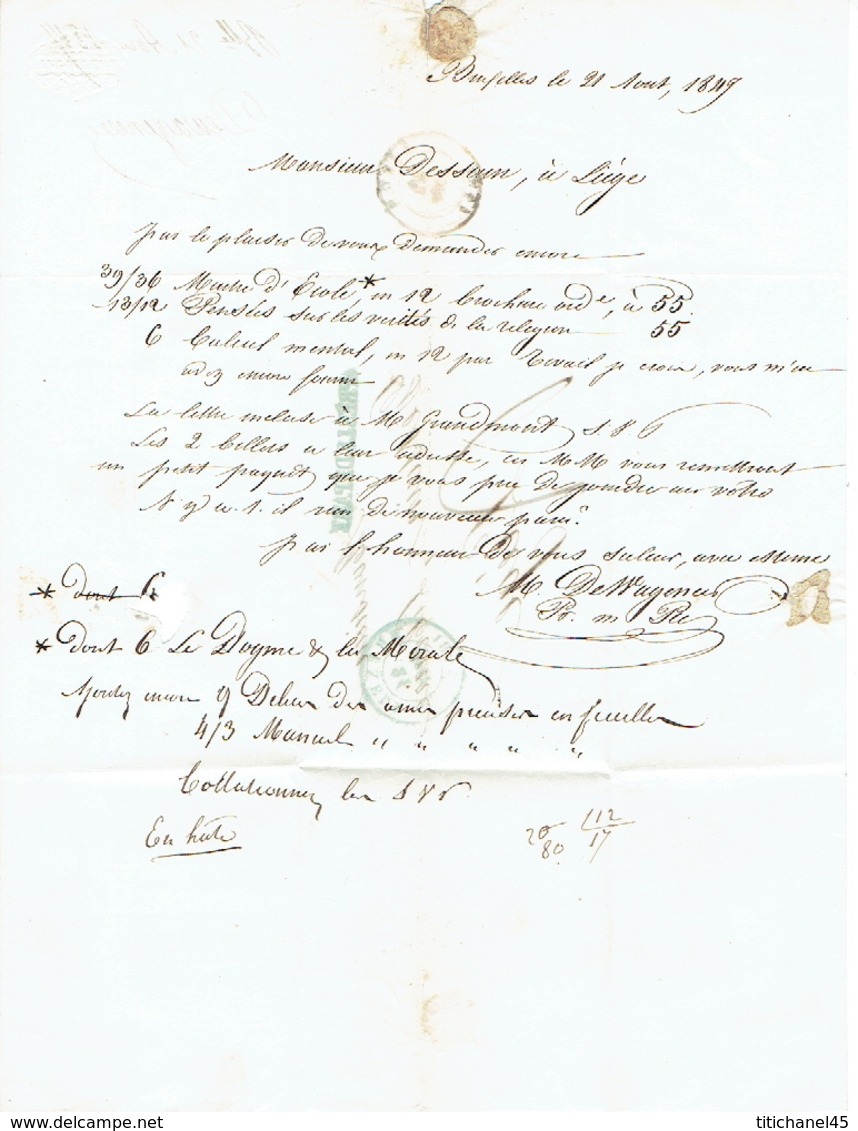 Bruxelles le 21 Aout, 1849
Monsieur Dessain, à Liége
J'ai le plaisir de vous demander encore
39/36 Maitre d'Ecole*, in 12 brochure ord.e, à 55.
13/12 Pensées sur les verités de la religion 55
6 Calcul mental, in 12 par je crois, vous m'en
avez encore fourni
La lettre incluse à Mr Grandmont S.V.P
Les 2 billets a leur adresse, ces MM vous remettront
un petit paquet que je vous prie de joindre au vôtre
N'y a-t-il rien de nouveau paru?
J'ai l'honneur de vous saluer, avec estime
M. DeWageneer
* dont 6
* dont 6 Le Dogme & la Morale
Ajoutez encore 9 Delices des ames pieuses en feuilles
4/3 Manuel " " " " "
Collationnez les S V P.
En hâte
20 112
80 17
APRES LE DEPART
titichanel45